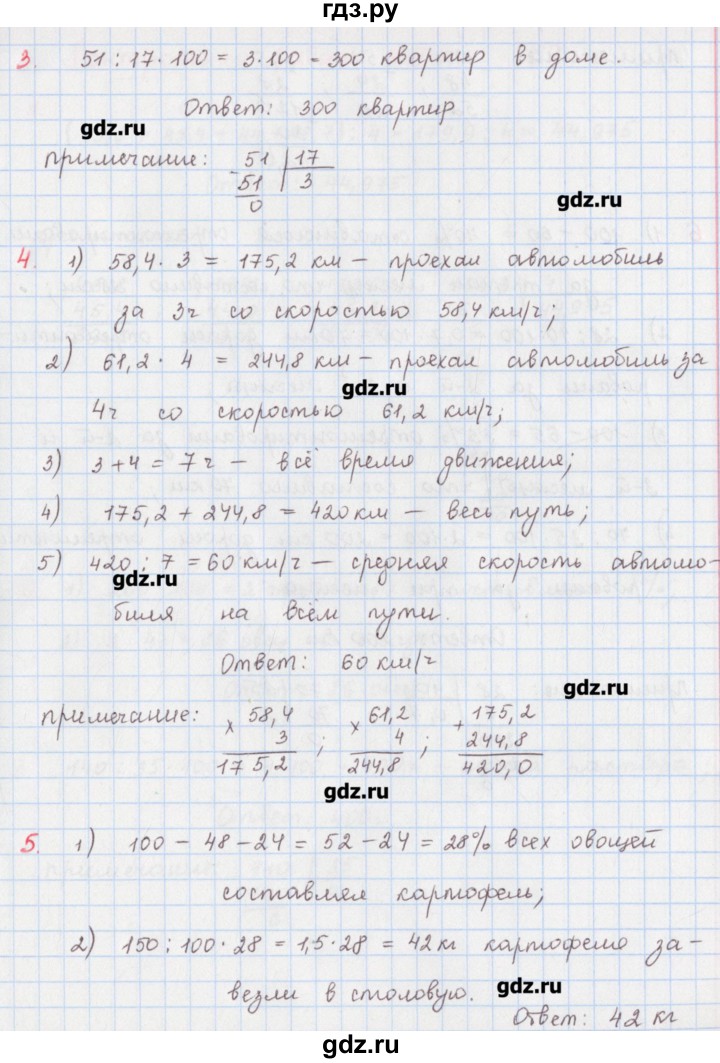 гдз.ру
3. 51 : 17 · 100 = 3 · 100 = 300 квартир в доме.
Ответ: 300 квартир
gdz.ru
примечание: 51 | 17
- 51 | 3
0
gdz.ru
4. 1) 58,4 · 3 = 175,2 км — проехал автомобиль
за 3ч со скоростью 58,4 км/ч;
2) 61,2 · 4 = 244,8 км — проехал автомобиль за
gdz.ru
4ч со скоростью 61,2 км/ч;
3) 3 + 4 = 7 ч — всё время движения;
4) 175,2 + 244,8 = 420 км — весь путь;
5) 420 : 7 = 60 км/ч — средняя скорость автомо-
gdz.ru
биля на всём пути.
Ответ: 60 км/ч
gdz.ru
примечание: × 58,4 × 61,2 + 175,2
3 ; 4 ; 244,8
175,2 244,8 420,0
gdz.ru
5. 1) 100 - 48 - 24 = 52 - 24 = 28% всех овощей
составлял картофель;
2) 150 : 100 · 28 = 1,5 · 28 = 42 кг картофеля за-
везли в столовую.
gdz.ru
Ответ: 42 кг
gdz.ru